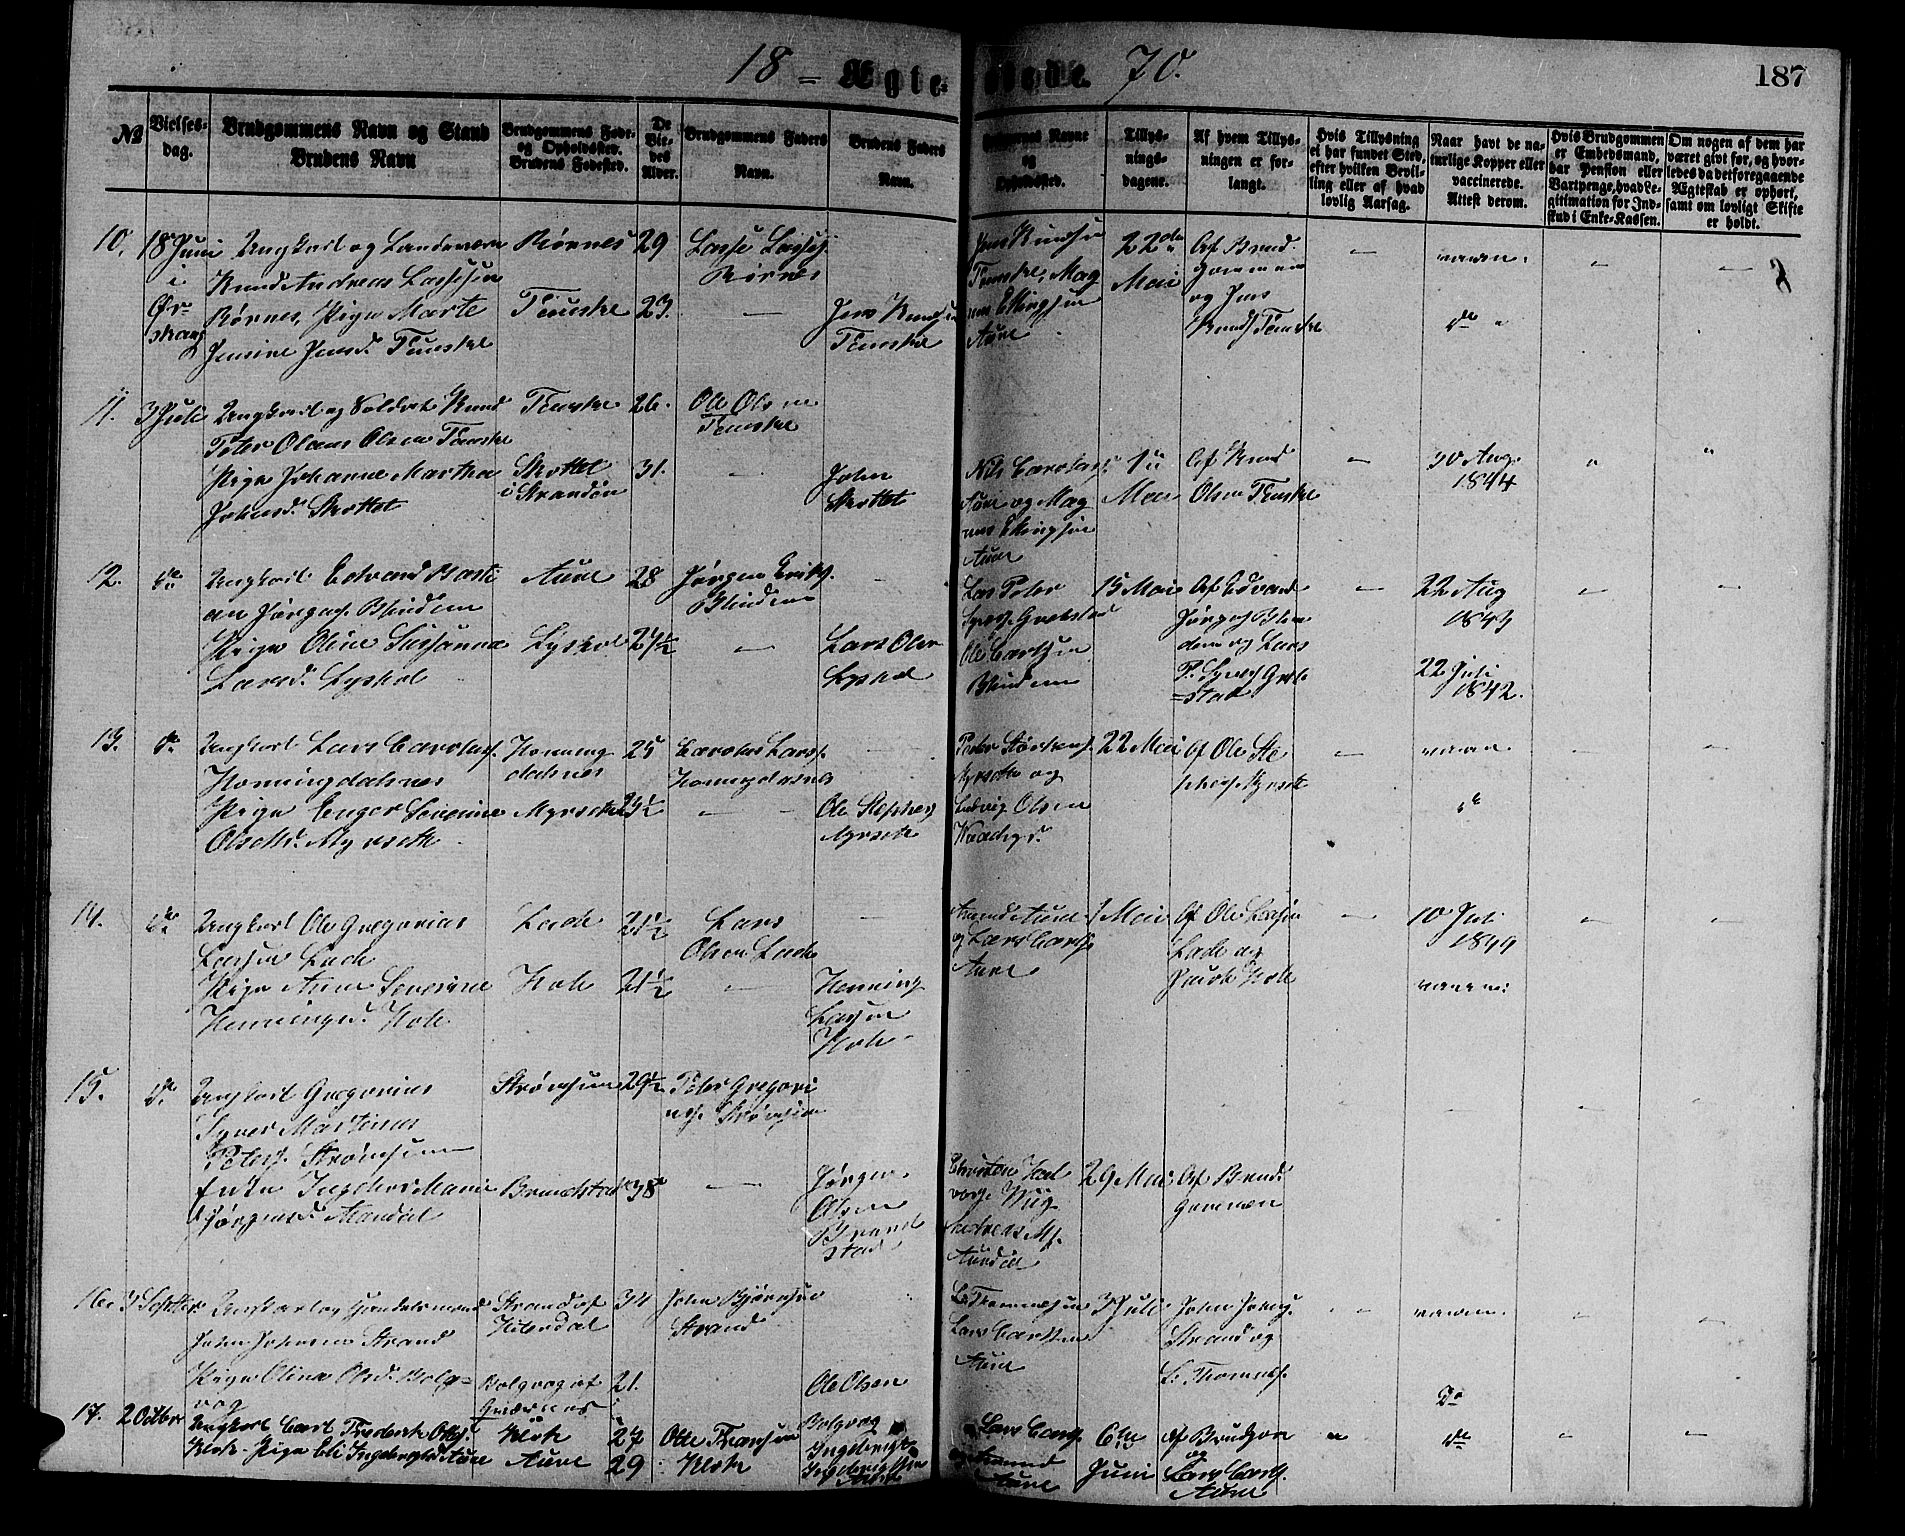 18 - Ægte- stode. 70.
187
№
Vielses-
dag.
Brudgommens Navn og Stand
Brudens Navn
Brudgommens Føde-
og Opholdssted.
Brudens Fødested.
De
Vie-
des
Alder.
Brudgommens Faders
Navn.
Brudens Faders
Navn.
Navne
og
Opholdssted.
Tillys-
nings-
dagene.
Af hvem Tillys-
ningen er for-
langt.
Hvis Tillysning
ei har fundet Sted,
efter hvilken Bevil-
ling eller af hvad
lovlig Aarsag.
Naar havt de na-
turlige Kopper eller
vaccinerede.
Attest derom.
Hvis Brudgommen
er Embedsmand,
har Pension eller
Vartpenge, hvad Le-
gitimation for Ind-
skud i Enke-Kassen.
Om nogen af dem har
været givt før, og hvor-
ledes da det foregaaende
Ægteskab er ophørt,
samt om lovligt Skifte
er holdt.
10. 18 Juni
i
Ør-
skoug
Ungkarl og Landeværn
Knud Andreas Lassesen
Rørnes, Pige Marte
Jensine Jensd. Tenske
Rørnes 29
Tenske 23.
Lasse Lasses.
Rørnes
Jens Knudsen
Tenske
Jens Knudsen
Tenske, Mag
nus Ellingsen
Aure
22de
Mai
Af Brud
gommen
og Jens
Knuds. Tenske
vaccn.
do
11. 3 Juli
Ungkarl og Soldat Knud
Peter Olaus Olsen Tenske
Pige Johanne Martha
Johnsd. Skottet
Tenske 26.
Skottet
i Stranden 31.
Ole Olsen
Tenske
John
Skottet
Nils Carolus.
Aure og Mag
nus Ellingsen
Aure
1ste
Mai
Af Knud
Olsen Tenske
30 Aug.
1844
12. do
Ungkarl Edvard Basti
an Jørgens. Blindem
Pige Oline Susanna
Larsd. Lyshol
Aure 28
Lyshol 27½
Jørgen Eriks.
Blindem
Lars Olsen
Lyshol
Lars Peter
Syvers. Grebstad
Ole Carlsen
Blindem
15 Mai
Af Edvard
Jørgens. Blin
dem og Lars
P. Syvers. Greb
=stad
22 Aug
1843
22 Juli
1842.
13. do
Ungkarl Lars Carolus.
Honningdalsnes
Pige Inger Severine
Olsdtr. Myrseth
Honning
dalsnes 25
Myrseth 23½
Carolus Lars.
Honningdalsnes
Ole Stephens.
Myrseth
Peder
Myrseth og
Ludvig Olsen
22 Mai
Af Ole Ste
phens. Myrseth
vaccn.
do
14. do
Ungkarl Ole Gregorius
Larsen Lade
Pige Anne Severine
Henningsd. Hole
Lade 21½
Hole 21½
Lars
Olsen Lade
Henning
Larsen
Hole
Amund Aure
og Lars Carls.
Aure
1 Mai
Af Ole Larsen
Lade og
Hole
10 Juli
1849
vaccn.
15. do
Ungkarl Gregorius
Syver Martinus
Peters. Strømsem
Enke Ingeborg Marie
Jørgensd. Aurdal
Strømsem 29½
Brundstad 38
Peter Gregori
us. Strømsem
Jørgen
Olsen
Brund
stad
Christen Hal
vors. Viig
Andreas M.
Aurdal
29 Mai
Af Brud
gommen
16. 3 Septbr.
Ungkarl og Handelsmand
John Johnsen Strand
Pige Oline Olsd. Bolg-
vog
Strand af
Hiterdal 34
Bolgvog af
Gværnes 21.
John Bjørnsen
Strand
Ole Olsen
Bolgvog
L. Thommesen
Lars Carlsen
Aure
3 Juli
John Johns.
Strand og
L. Thommes.
vaccn.
Do
17. 2 Octbr.
Ungkarl Carl Fredrik Otts.
Klok. Pige Eli Ingebrigtsd. Aure
Klok 27
Aure 29
Otte Fransen
Klok
Ingebrigt
Ingebrigtsen
Aure
Lars Carls.
og Amund
Aure
6te
Juni
Af Brudgom
og
Lars Carls.
Aure
do